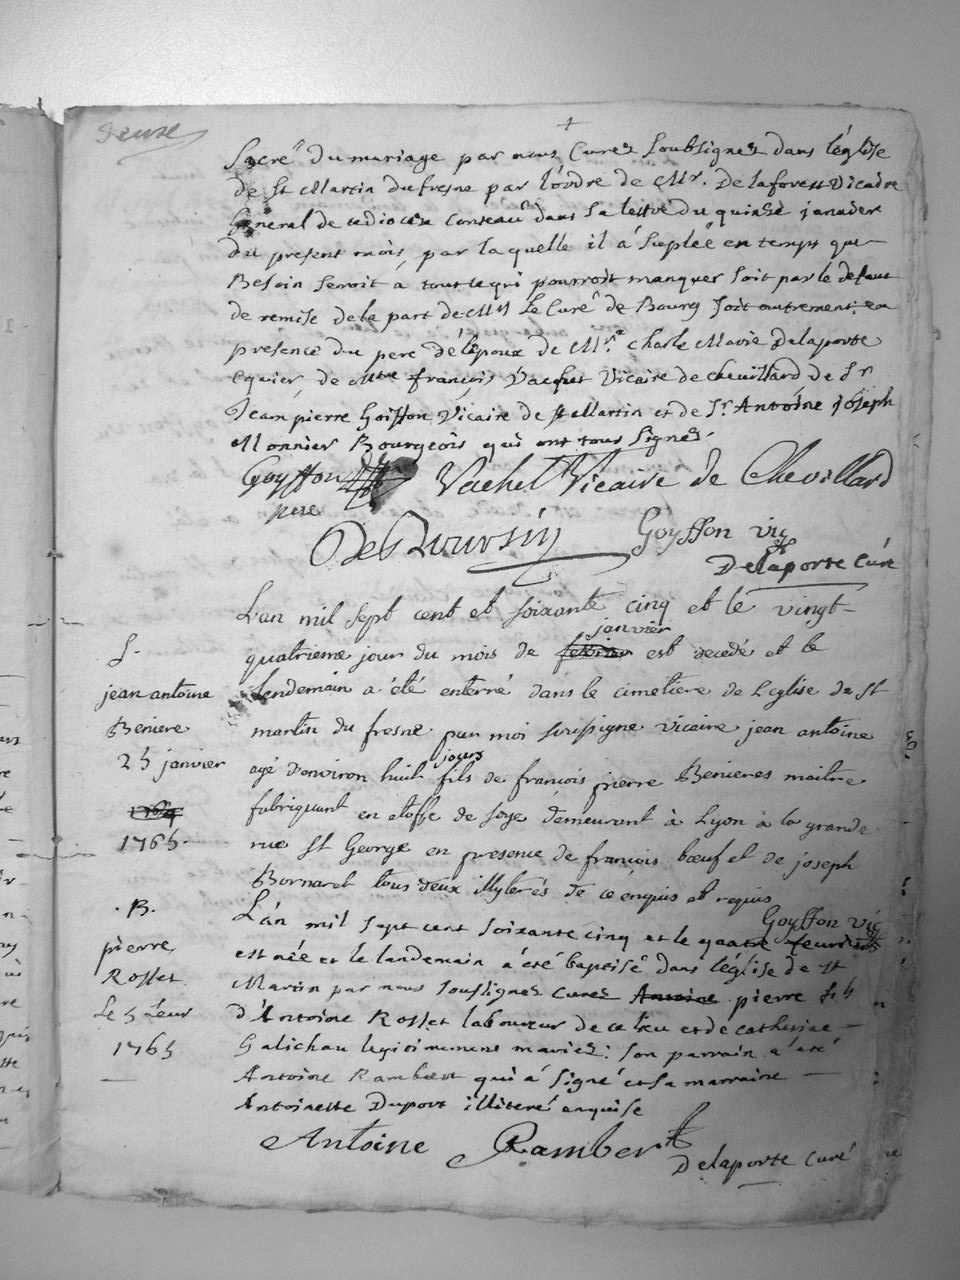 deuxe
Sacré du mariage par nous Curés Soubsignés dans l'église
de St Martin dufresne par l'ordre de Mr. Delaforest Vicaire
General de cediocese Conteaû dans sa lettre du quinze janvier
du present mois, par laquelle il á Supleé en temps que
Besoin Seroit á tout cequi pourroit manquer Soit par le defaut
de remise dela part de Mr Le Curé de Bourg Soit autrement, en
presence du pere de l'epoux de Mre Charle Marie Delaporte
Equier, de Mtre françois Vachet Vicaire de Chevillard de Sr
Jean pierre Goiffon Vicaire de St Martin et de Sr. Antoine joseph
Monnier Bourgeois qui ont tous Signés.
Goyffon Vachet Vicaire de Chevillard
pere
Goyffon vic
Delaporte Curé
L'an mil sept cent et soixante cinq et le vingt-
janvier
quatrieme jour du mois de fevrier est decedé et le
lendemain a été enterré dans le cimetiere de L'eglise de St
martin du fresne par moi sousigne vicaire jean antoine
jours
agé d'environ huit fils de françois pierre Benieres maitre
fabriquant en etoffe de soye demeurant à Lyon à la grande
rue St George en presence de françois bœuf et de joseph
Bornaret tous deux illyterés de ce enquis et requis
Goyffon vic
S.
jean antoine
Beniere
25 janvier
1764
1765.
L'an mil sept cent soixante cinq et le quatre feuvrier
est née et le landemain a été baptisé dans l'église de St
Martin par nous soussignes Curés Antoine pierre fils
d'Antoine Rosset laboureur de ce lieu et de catherine
Galichau legitimement mariés: son parrain a été
Antoine Rambert qui á Signé et sa marraine
Antoinette Dupont illiteré enquise
Antoine Rambert
Delaporte Curé
.B.
pierre
Rosset
Le 5 feur
1765